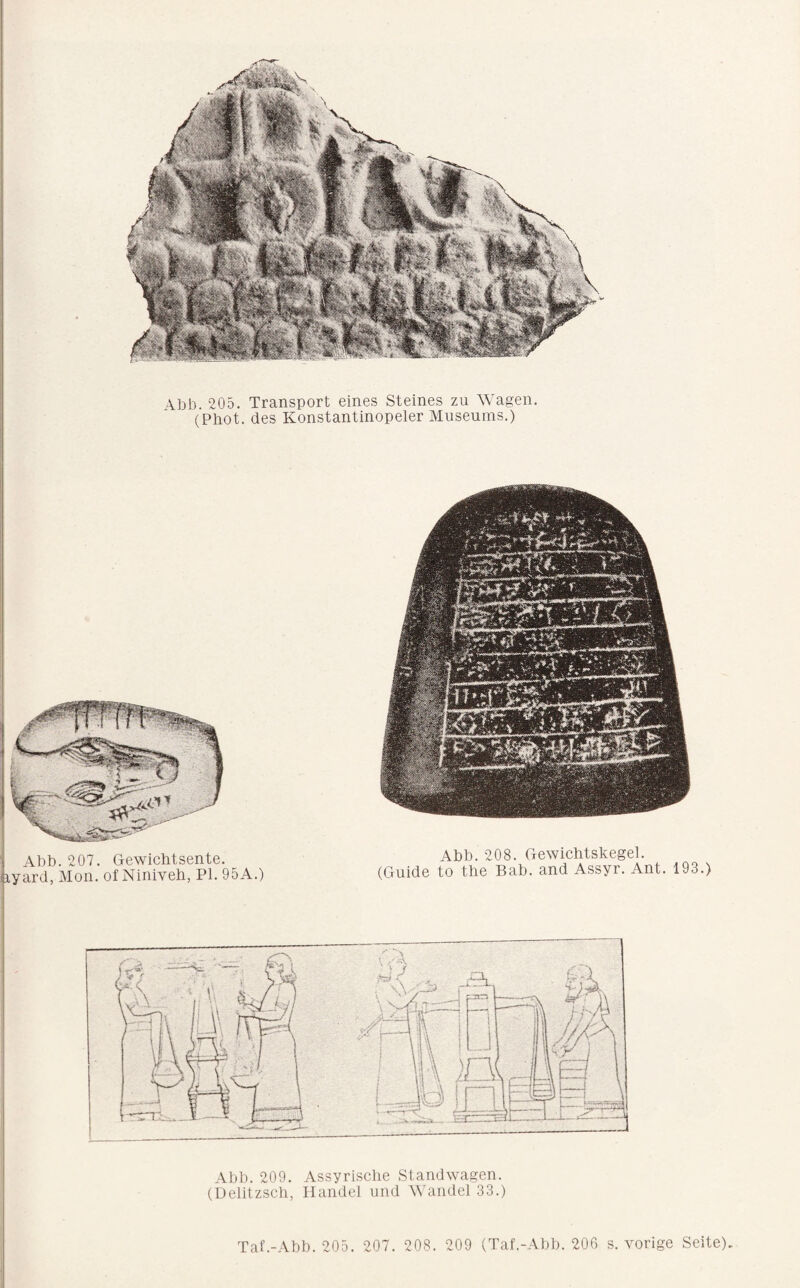 Abb. 205. Transport eines Steines zu Wagen.
(Phot. des Konstantinopeler Museums.)
Abb. 207. Gewichtsente.
ayard, Mon. of Niniveh, Pl. 95A.)
Abb. 208. Gewichtskegel.
(Guide to the Bab. and Assyr. Ant. 193.)
Abb. 209. Assyrische Standwagen.
(Delitzsch, Handel und Wandel 33.)
Taf.-Abb. 205. 207. 208. 209 (Taf.-Abb. 206 s. vorige Seite).